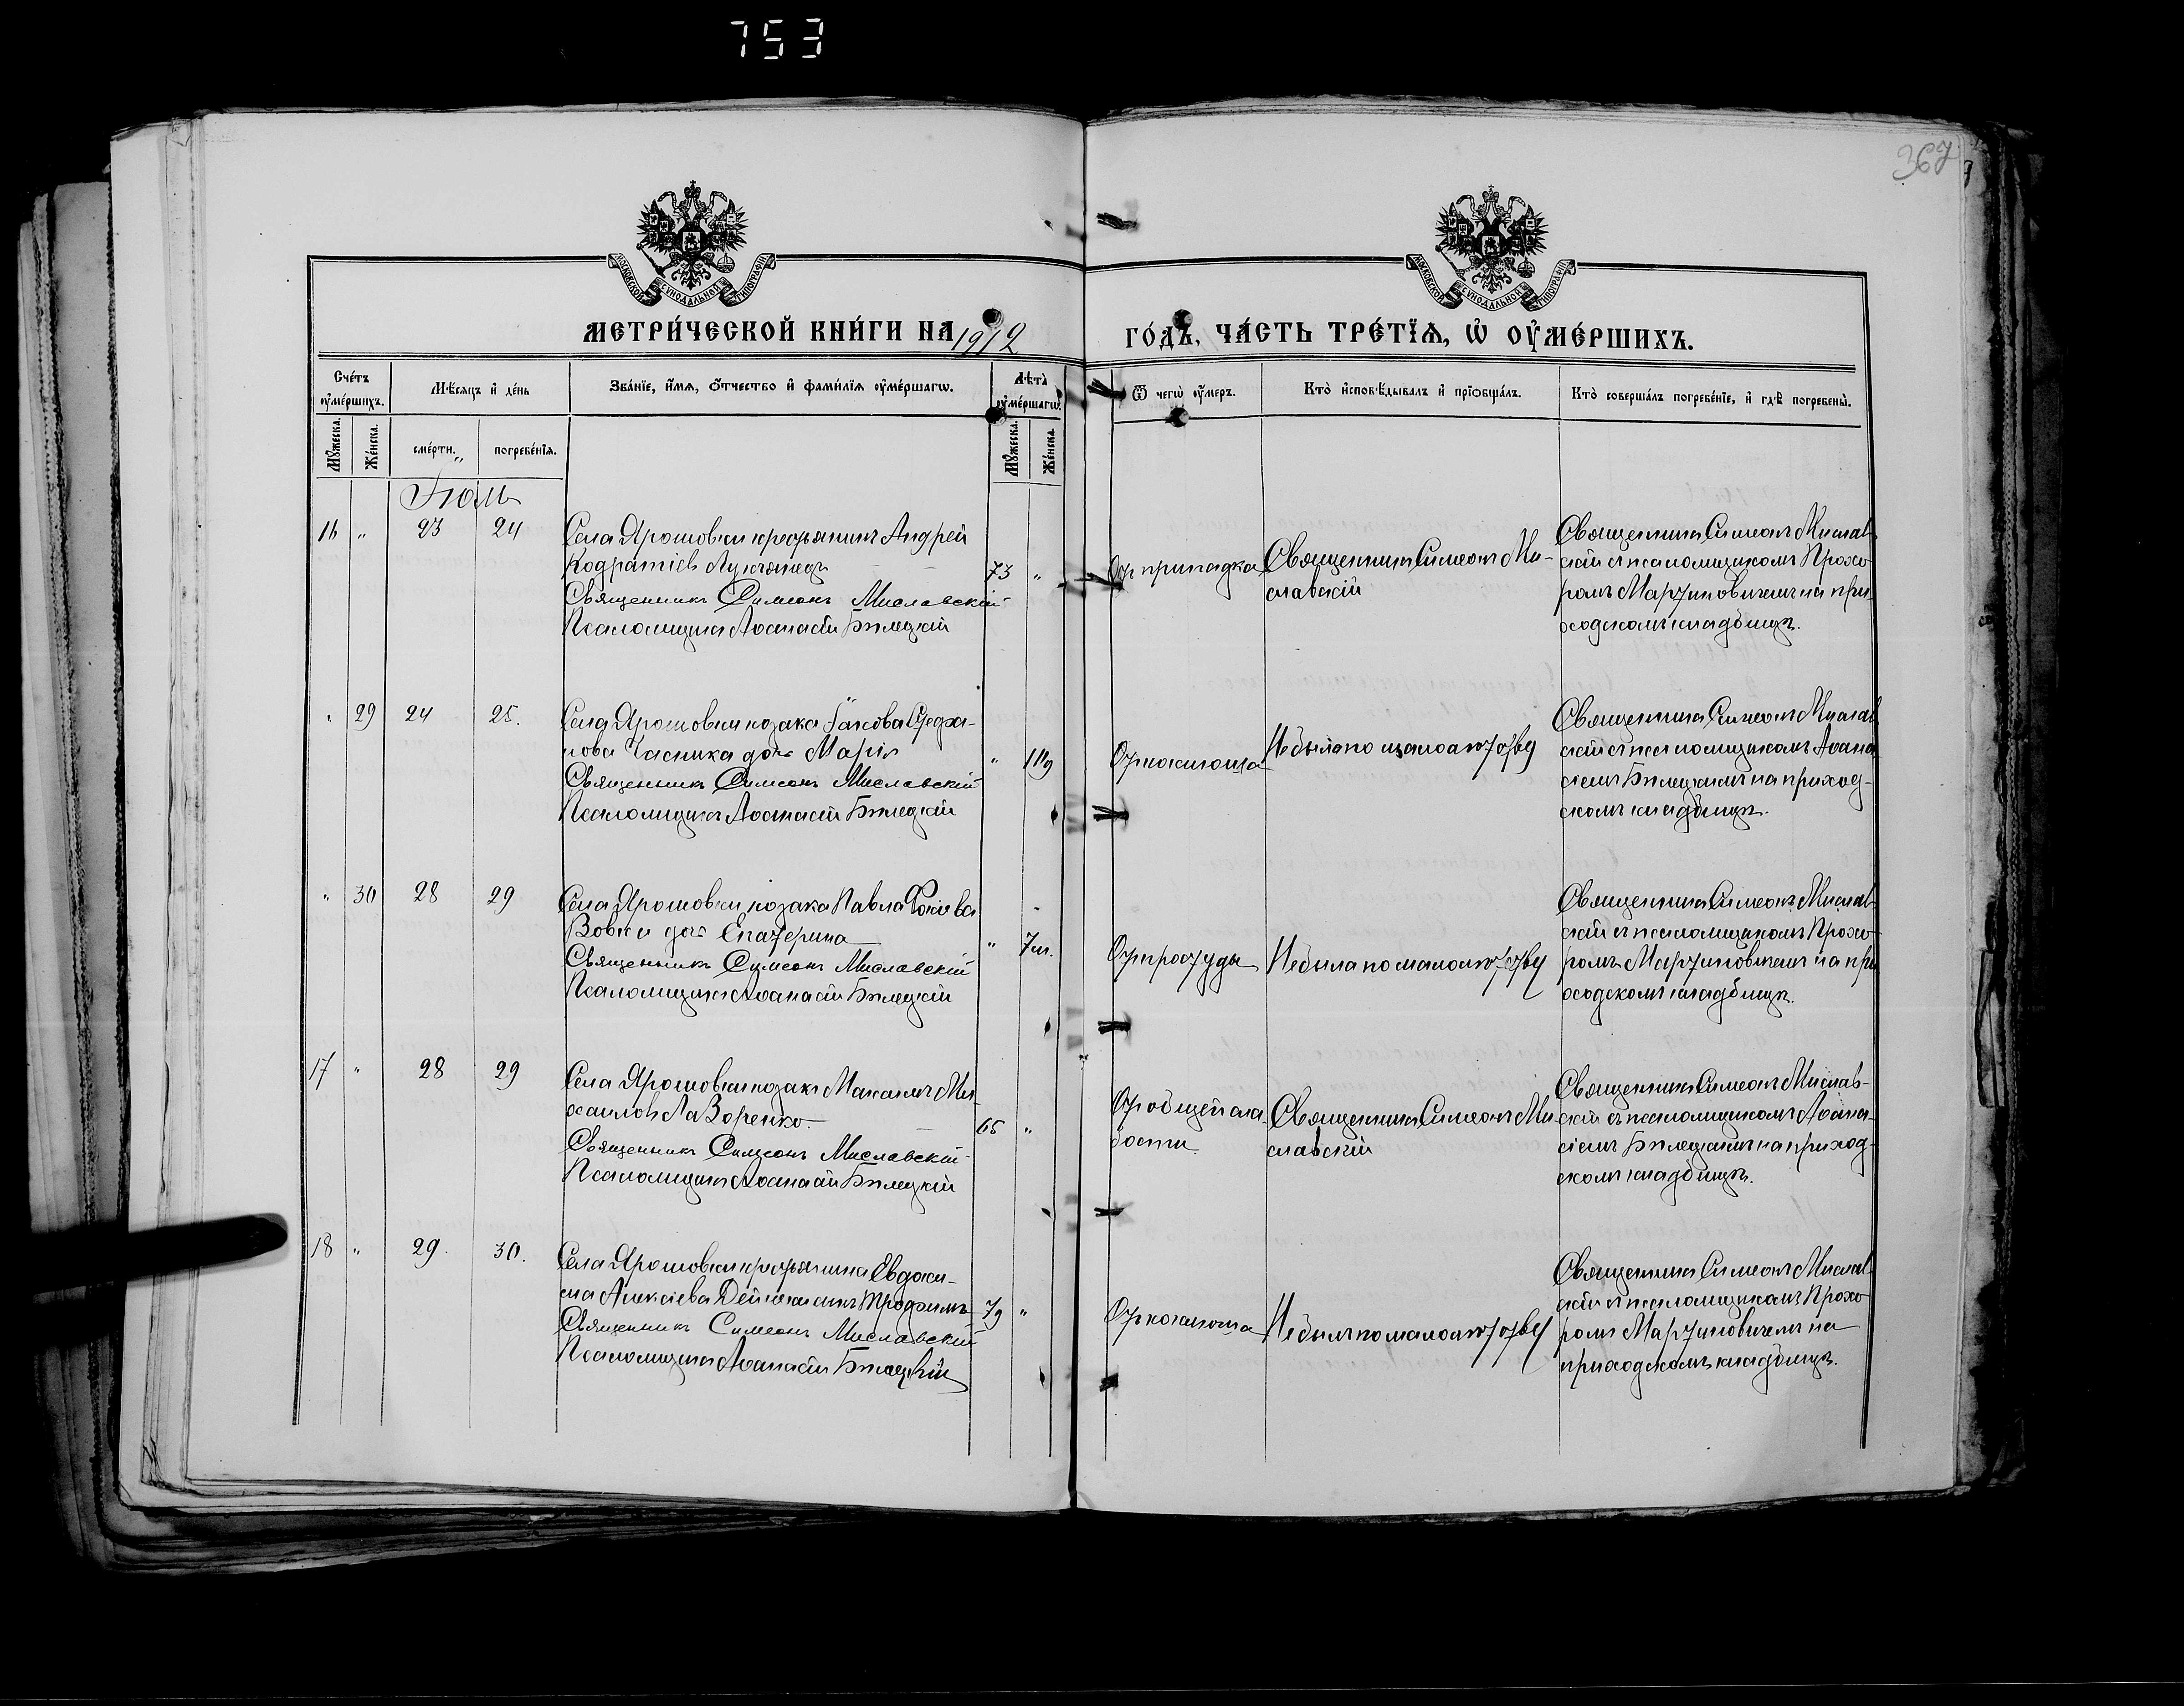 753
367
МОСКОВСКОЙ СУНОДАЛЬНОЙ ТИПОГРАФІИ
МОСКОВСКОЙ СУНОДАЛЬНОЙ ТИПОГРАФІИ
МЕТРИ́ЧЕСКОЙ КНИ́ГИ НА 1912 ГО́ДЪ, ЧА́СТЬ ТРЕ́ТЇѦ, Ѡ҆ ОУ҆МЕ́РШИХЪ.
Сче́тъ оу҆ме́ршихъ.
Мѣ́сяцъ и҆ де́нь
Зва́нїе, и҆́мѧ, ѻ҆́тчество и҆ фами́лїѧ оу҆ме́ршагѡ.
Лѣ́та оу҆ме́ршагѡ.
Ѿ чегѡ̀ оу҆́меръ.
Кто̀ и҆сповѣ́дывалъ и҆ прїѡбща́лъ.
Кто̀ соверша́лъ погребе́нїе, и҆ гдѣ̀ погребены̀.
Мꙋ́жеска. Же́нска.
сме́рти. погребе́нїѧ.
Мꙋ́жеска. Же́нска.
Іюль
16 „ 23 24
Села Ярошовки крестьянинъ Андрей
Кодратіевъ
Священникъ Симеонъ Миславскій
Псаломщикъ Аѳанасій Бѣлецкій
73 „
От припадка
Священникъ Симеонъ Ми-
славскій
Священникъ Симеонъ Мислав-
скій съ псаломщикомъ Прохо-
ромъ Мартиновичемъ на при-
ходскомъ кладбищѣ.
„ 29 24 25.
Села Ярошовки козака Іакова Стефа-
нова Часника дочь Марія
Священникъ Симеонъ Миславскій
Псаломщикъ Аѳанасій Бѣлецкій
„
От коклюша
Не была по малолѣтству
Священникъ Симеонъ Мислав-
скій съ псаломщикомъ Аѳана-
сіемъ Бѣлецкимъ на приход-
скомъ кладбищѣ.
„ 30 28 29
Села Ярошовки козака Павла
Вовки дочь Екатерина
Священникъ Симеонъ Миславскій
Псаломщикъ Аѳанасій Бѣлецкій
„ 7 м.
От простуды
Не была по малолѣтству
Священникъ Симеонъ Мислав-
скій съ псаломщикомъ Прохо-
ромъ Мартиновичемъ на при-
ходскомъ кладбищѣ.
17 „ 28 29
Села Ярошовки козакъ Максимъ Ми-
хаиловъ Лазоренко
Священникъ Симеонъ Миславскій
Псаломщикъ Аѳанасій Бѣлецкій
65 „
От общей сла-
бости
Священникъ Симеонъ Ми-
славскій
Священникъ Симеонъ Мислав-
скій съ псаломщикомъ Аѳана-
сіемъ Бѣлецкимъ на приход-
скомъ кладбищѣ.
18 „ 29. 30.
Села Ярошовки крестьянина Евдоки-
ма Алексіева сынъ Трофимъ
Священникъ Симеонъ Миславскій
Псаломщикъ Аѳанасій Бѣлецкій
„
От коклюша
Не былъ по малолѣтству
Священникъ Симеонъ Мислав-
скій съ псаломщикомъ Прохо-
ромъ Мартиновичемъ на
приходскомъ кладбищѣ.